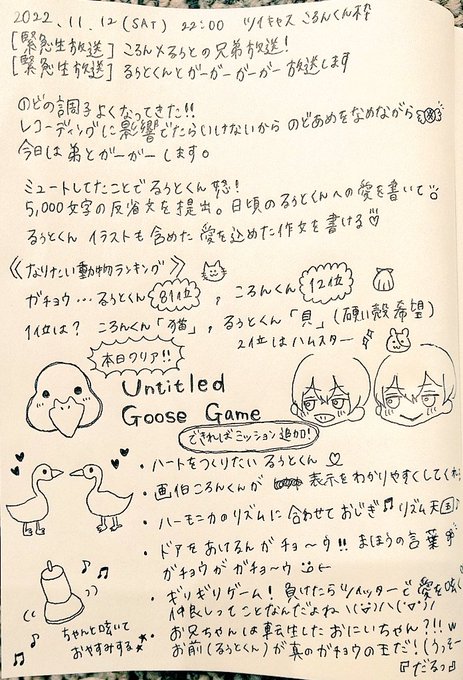 2022.11.12(SAT) 22:00 ツイキャス ころんくん枠
[緊急生放送] ころん×るぅとの兄弟放送!
[緊急生放送] るぅとくんとがーがーがーがー放送します
のどの調子よくなってきた!!
レコーディングに影響でたらいけないから のどあめをなめながら
今日は弟とガーガーします。
ミュートしてたことでるぅとくん怒!
5,000文字の反省文を提出。日頃のるぅとくんへの愛を書いて
るぅとくん イラストも含めた 愛を込めた作文を書ける♡
《なりたい動物ランキング》
ガチョウ…るぅとくん 81位 , ころんくん 12位
1位は? ころんくん「猫」, るぅとくん「貝」(硬い殻希望)
2位はハムスター
本日クリア!!
Untitled
Goose Game
できればミッション追加!
・ハートをつくりたい るぅとくん♡
・画伯ころんくんが 表示をわかりやすくしてくれ
・ハーモニカのリズムに合わせておじぎ♫リズム天国♪
・ドアをあけるんガチョ〜ウ!! まほうの言葉
ガチョウがガチョ〜ウ
・ギリギリゲーム! 負けたらツイッターで愛を呟く
仲良しってことなんだよね \(ˇ▽ˇ)/\(ˇ▽ˇ)/
お兄ちゃんは転生したおにいちゃん?!! w
お前(るぅとくん)が真のガチョウの王だ!(うっそー
『だるっ』
ちゃんと呟いて
おやすみする